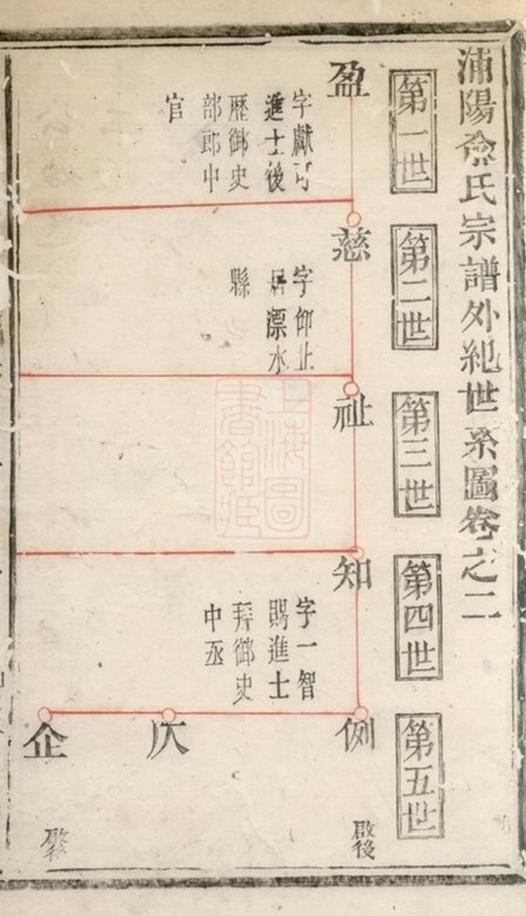 蒲陽俞氏宗譜外紀世系圖卷之二
第一世
第二世
第三世
第四世
第五世
盈
字獻可
進士後
歷御史
部郎中
官
慈
字仰止
居漂水
縣
祉
知
字一智
賜進士
拜御史
中丞
例
啟後
仄
企
上海圖
書館藏